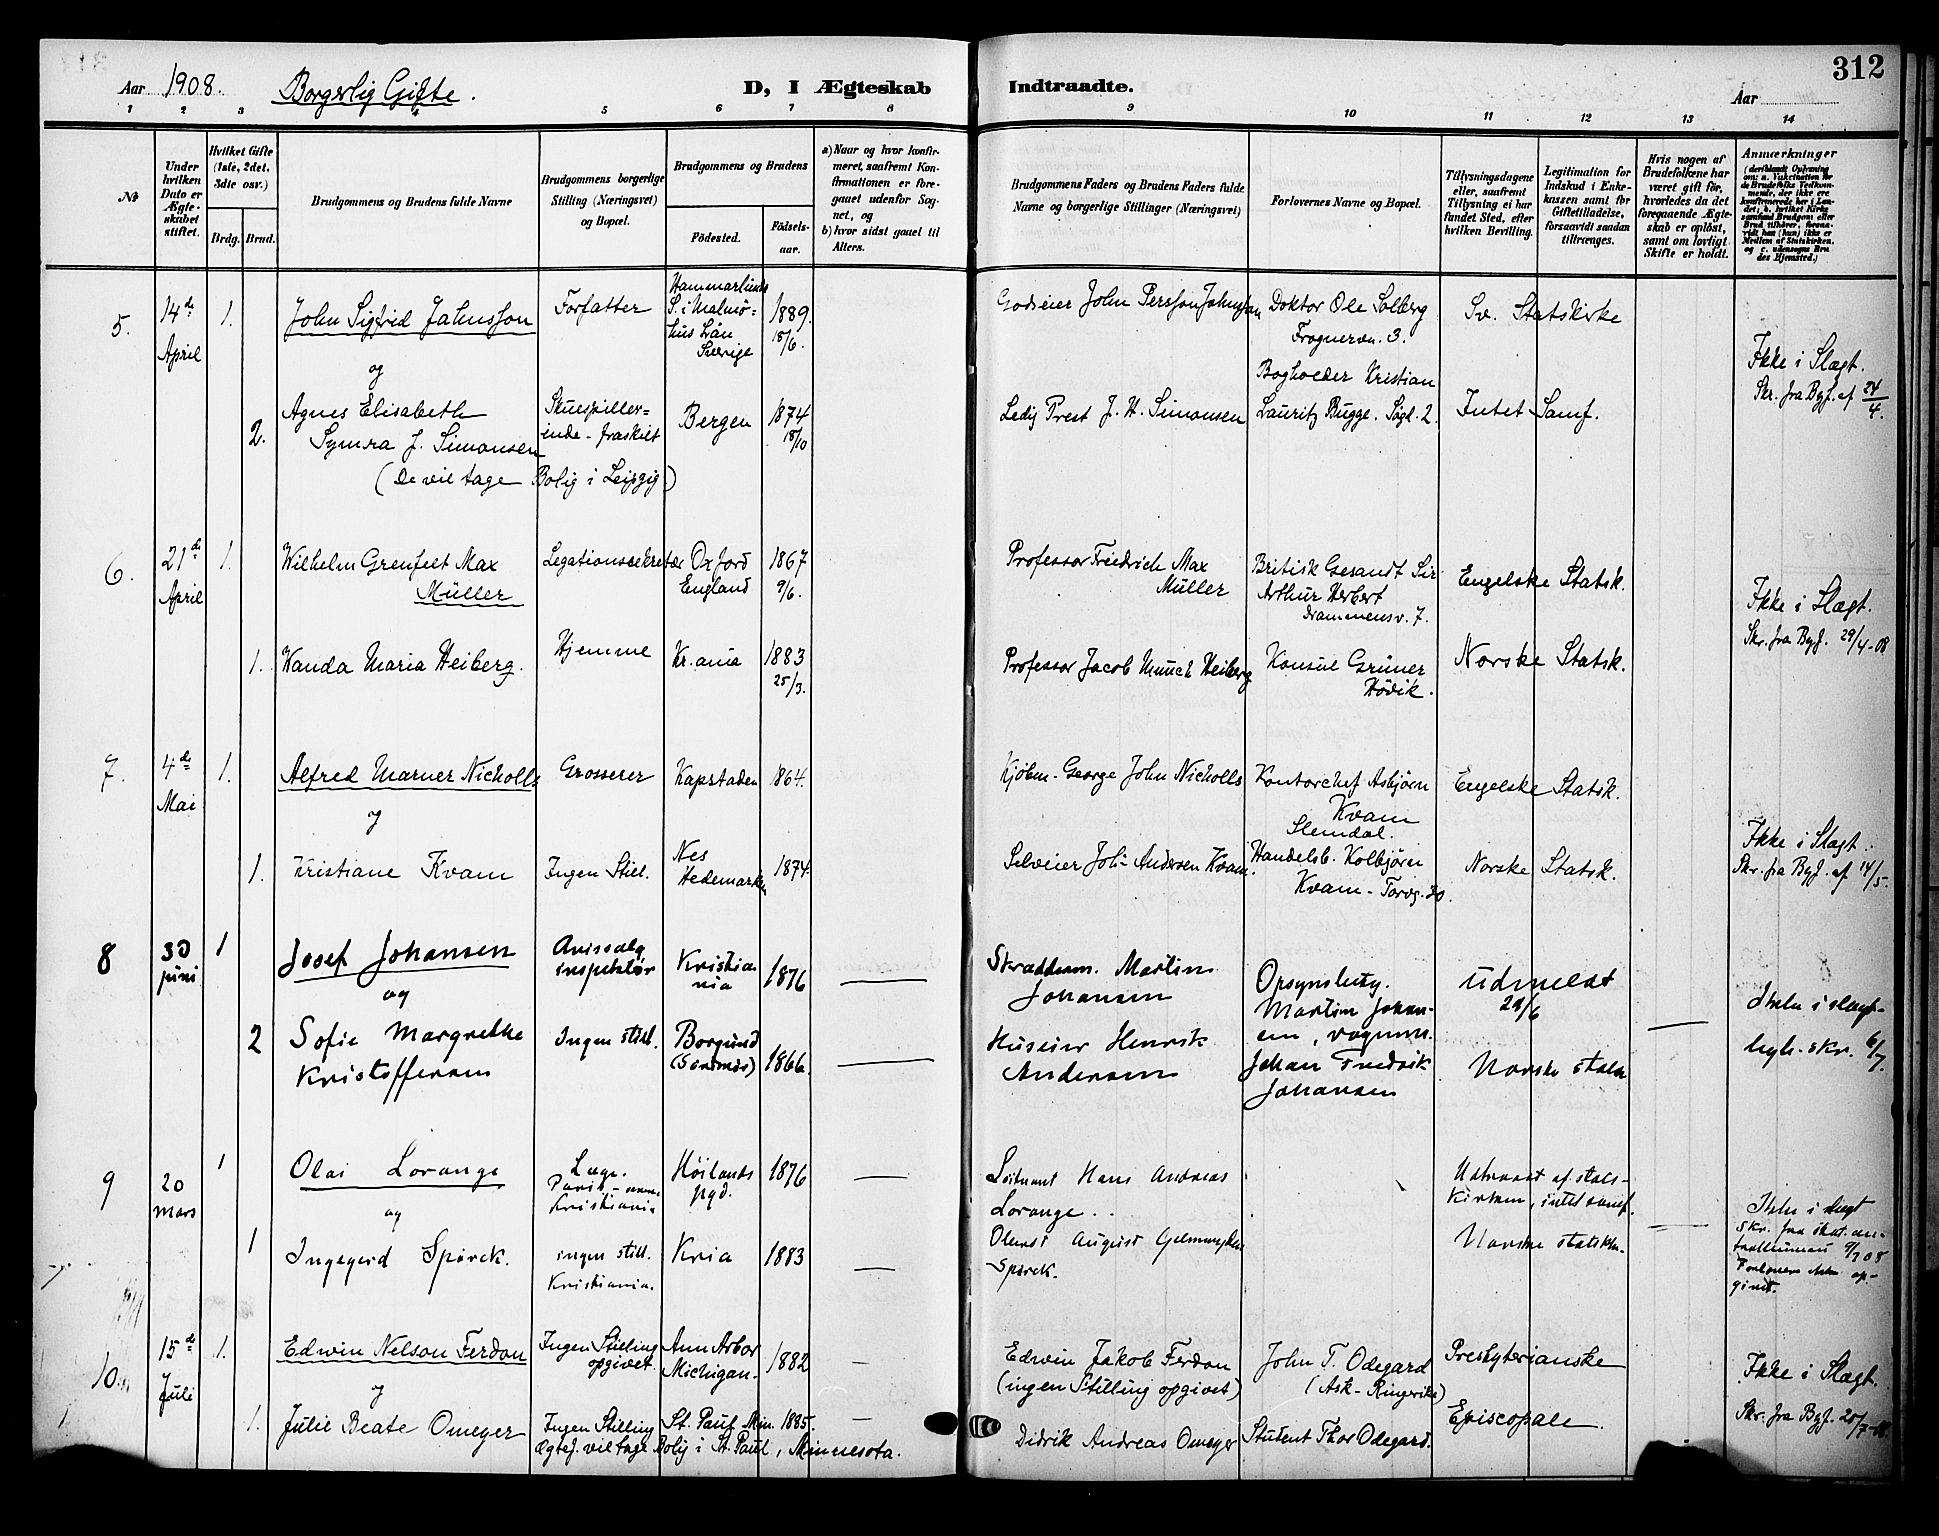 312
Aar 1908. Borgerlig Gifte. D, I Ægteskab Indtraadte. Aar
1 2 3 4 5 6 7 8 9 10 11 12 13 14
№
Under hvilken Dato er Ægteskabet stiftet.
Hvilket Gifte (1ste, 2det, 3die osv.)
Brdg. Brud.
Brudgommens og Brudens fulde Navne
Brudgommens borgerlige Stilling (Næringsvei) og Bopæl.
Brudgommens og Brudens
Fødested. Fødselsaar.
a) Naar og hvor konfirmeret, saafremt Konfirmationen er foregaaet udenfor Sognet, og
b) hvor sidst gaaet til Alters.
Brudgommens Faders og Brudens Faders fulde Navne og borgerlige Stillinger (Næringsvei)
Forlovernes Navne og Bopæl.
Tillysningsdagene eller, saafremt Tillysning ei har fundet Sted, efter hvilken Bevilling.
Legitimation for Indskud i Enkekassen samt for Giftetilladelse, forsaavidt saadan tiltrænges.
Hvis nogen af Brudefolkene har været gift før, hvorledes da det foregaaende Ægteskab er opløst, samt om lovligt Skifte er holdt.
Anmærkninger
5. 14de April 1. John Sigfrid Jahnsson Forfatter Hammarlunds S. i Malmöhus Län Sverige 1889. 18/6. Godseier John Persson Jahnsson Doktor Ole Solberg Frognervn. 3. Sv. Statskirke
og
2. Agnes Elisabeth Symra J. Simonsen Skuespillerinde - fraskilt Bergen 1874 18/10 Ledig Prest J. H. Simonsen Bogholder Kristian Lauritz Bugge. Sogd. 2. Intet Samf. Ikke i Slægt. Skr. fra Byf. af 24/4.
(De vil tage Bolig i Leipzig)
6. 21de April 1. Wilhelm Grenfell Max Müller Legationssekretær Oxford England 1867 9/6. Professor Friedrich Max Müller Britisk Gesandt Sir Arthur Herbert Drammensv. 7. Engelske Statsk.
1. Wanda Maria Heiberg. Hjemme Kr.ania 1883 25/3. Professor Jacob Munch Heiberg Konsul Grüner Hövik. Norske Statsk. Ikke i Slægt. Skr. fra Byf. 29/4-08
7. 4de Mai 1. Alfred Marner Nicholls Grosserer Kapstaden 1864. Kjøbm. George John Nicholls Kontorchef Asbjørn Kvam Slemdal. Engelske Statsk.
1. Kristiane Kvam Ingen Still. Nes Hedemarken 1874. Selveier Joh. Andersen Kvam. Handelsb. Kolbjørn Kvam - Torvg. 30. Norske Statsk. Ikke i Slægt. Skr. fra Byf. af 14/5.
8 30 juni 1 Josef Johansen Avissalginspektør Kristiania 1876 Skræddem. Martin Johansen Opsynsbetj. Martin Johansen, vognm. Udmeldt 29/6
og
2 Sofie Margrethe Kristoffersen Ingen still. Borgund (Søndmør) 1866. Huseier Henrik Andersen Johan Fredrik Johansen Norske statsk Ikke i slægt. byf. skr. 6/7.
9 20 mars 1 Olai Lorange Læge. Kristiania Høilands pgd. 1876 Løitnant Hans Andreas Lorange. Udtraadt af statskirken, intet samf.
og
1 Ingegerd Spørck. ingen still. Kristiania. Kria 1883 Oberst August Spørck. Norske statsk. Ikke i slægt
10. 15de Juli 1. Edwin Nelson Ferdon Ingen Stilling opgivet. Ann Arbor Michigan 1882 Edwin Jakob Ferdon (ingen Stilling opgivet) John T. Odegard (Ask - Ringerike) Presbyterianske
1. Julie Beate Omeyer Ingen Stilling St. Paul Min. 1885. Didrik Andreas Omeyer Student Thor Odegard. Episcopale. Ikke i Slægt. Skr. fra Byf. 20/7-08.
Ægtef. vil tage Bolig i St. Paul, Minnesota.